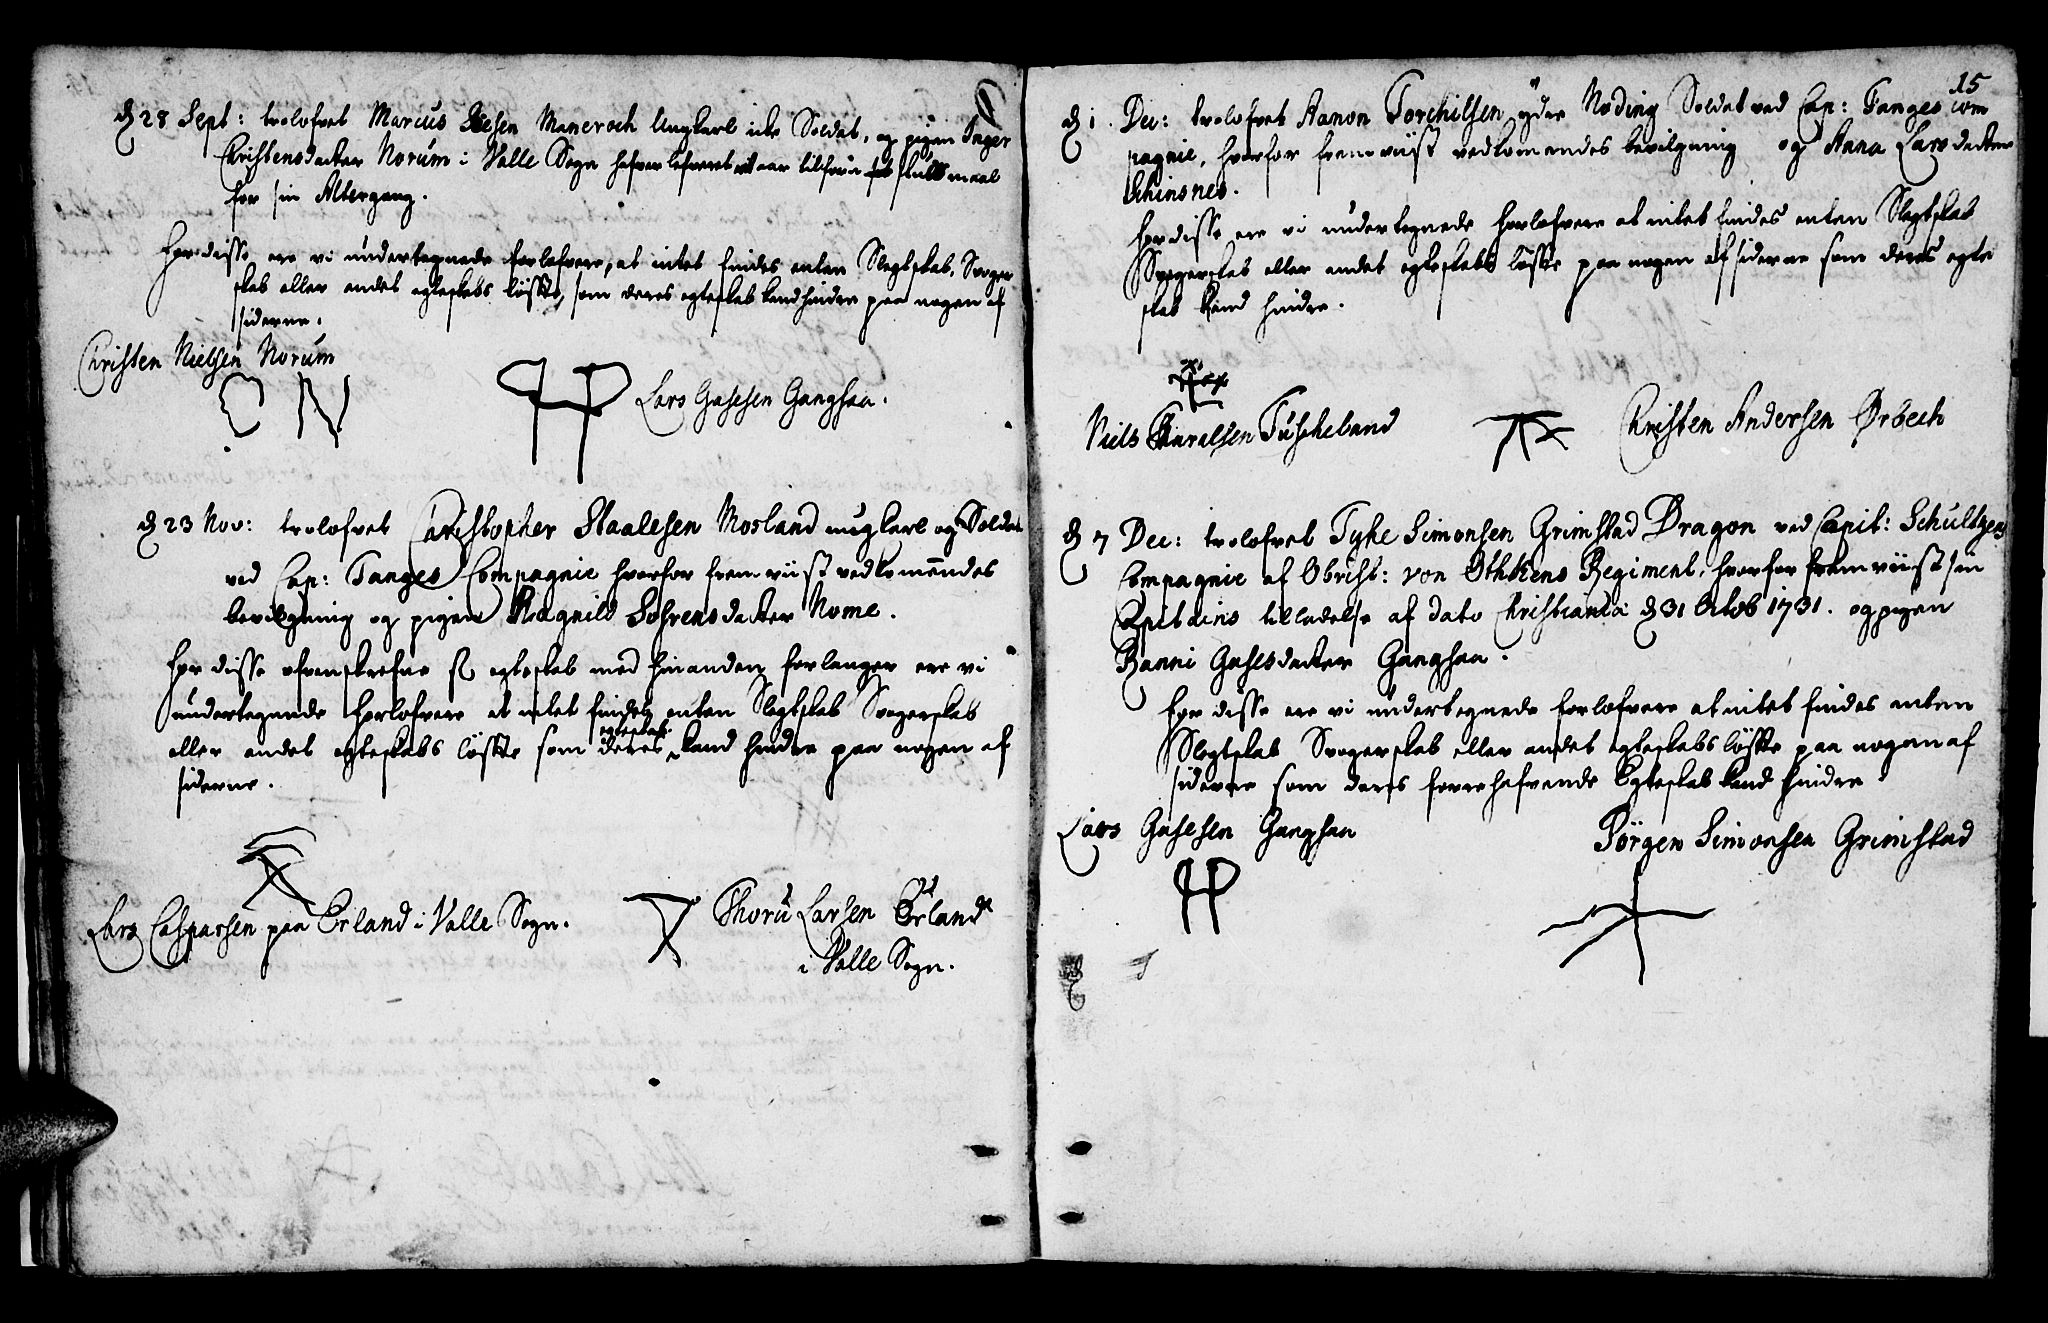 d 28 Sept: trolofvet Marcus Maneroch Ungkarl icke Soldat, og pigen Inger
Christensdatter Norum i Valle Sogn hafver lefveret aar tilforn skudsmaal
for sin Altergang.
For disse ere vi undertegnede forlofvere, at intet findes enten Slegtskab, Svoger
skab eller andet egteskabs löfte, som deres egteskab kand hindre paa nogen af
siderne.
Christen Nielsen Norum
C N
Lars Gasesen Ganghaa.
d 23 Nov: trolofvet Christopher Staalesen Mosland ungkarl og Soldat
ved Cap: Tanges Compagnie hvorfor fremviist vedkomendes
bevilgning og pigen Ragnild Sohrensdatter Nome.
For disse ofvenskrefne egteskab med hinanden forlanger ere vi
undertegnede forlofvere at intet findes enten Slegtskab Svogerskab
eller andet egteskabs löfte som deres egteskab kand hindre paa nogen af
siderne.
Lars Caspersen paa Erland i Valle Sogn.
Thoru Larsen Erland
i Valle Sogn.
15
d 1. Dec: trolofvet Aanon Torchilsen ydre Nöding Soldat ved Cap: Tanges Com
pagnie, hvorfor fremviist vedkomendes bevilgning og Anna Larsdatter
Schinsnes.
For disse ere vi undertegnede forlofvere at intet findes enten Slegtskab
Svogerskab eller andet egteskabs löfte paa nogen af siderne som deres egte
skab kand hindre.
Niels Taralsen Tuscheland
Christen Andersen Ørbech
d 7 Dec: trolofvet Tyke Simonsen Grimstad Dragon ved Capit: Schultzens
Compagnie af Obrist: von Othkens Regiment, hvorfor fremviist sin
Capitains tilladelse af dato Christiania d 31 Octob 1731. og pigen
Ranni Gasesdatter Ganghaa.
For disse ere vi undertegnede forlofvere at intet findes enten
Slegtskab Svogerskab eller andet egteskabs löfte paa nogen af
siderne som deres forrehafvende Egteskab kand hindre
Lars Gasesen Ganghaa
Jörgen Simonsen Grimstad